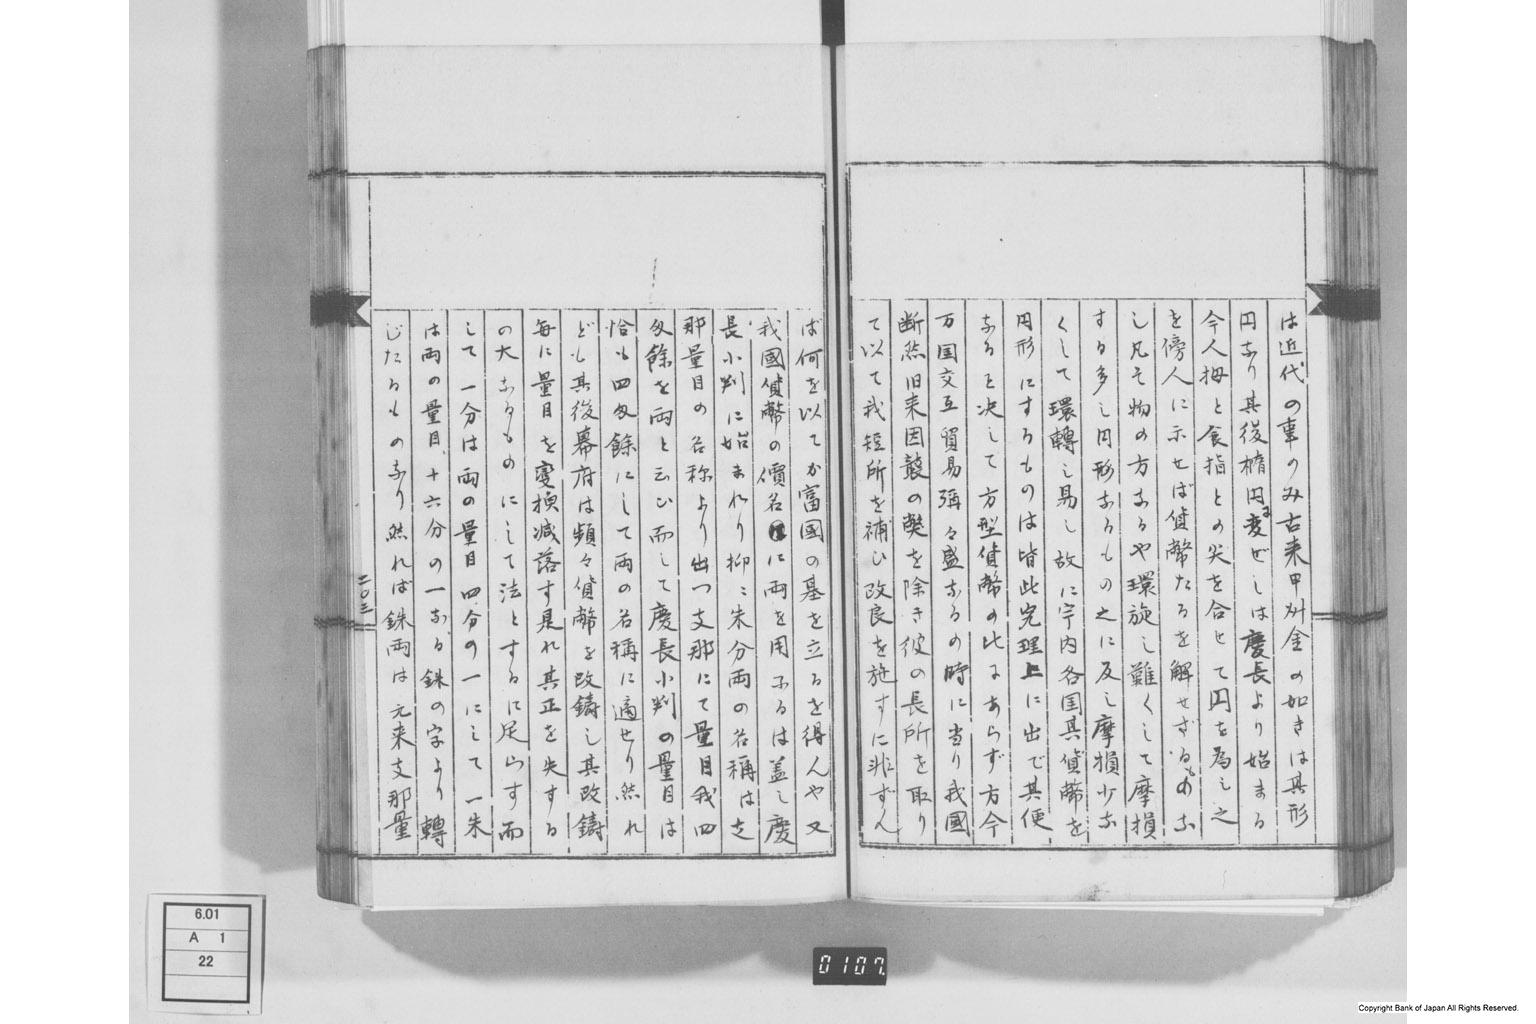 は近代の事のみ古来甲州金の如きは其形
円なり其後楕円に変ぜしは慶長より始まる
今人拇と食指との尖を合せて円を為し之
を傍人に示せば貨幣たるを解せざるものな
し凡そ物の方なるや環旋し難くして摩損
する多し円形なるもの之に反し摩損少な
くして環轉し易し故に宇内各国其貨幣を
円形にするものは皆此究理上に出で其便
なるを决して方型貨幣の比にあらず方今
万国交互貿易彌々盛なるの時に当り我國
断然旧来因襲の弊を除き彼の長所を取り
て以て我短所を補ひ改良を施すに非ずん
ば何を以てか富國の基を立るを得んや又
我國貨幣の價名に両を用ふるは蓋し慶
長小判に始まれり抑〻朱分両の名稱は支
那量目の名称より出つ支那にて量目我四
匁餘を両と云ひ而して慶長小判の量目は
恰も四匁餘にして両の名稱に適せり然れ
ども其後幕府は頻々貨幣を改鑄し其改鑄
毎に量目を変換減落す是れ其正を失する
の大なるものにして法とするに足らす而
して一分は両の量目四分の一にして一朱
は両の量目十六分の一なる銖の字より轉
じたるものなり然れば銖両は元来支那量
二〇三
6.01
A 1
22
0107
Copyright Bank of Japan All Rights Reserved.